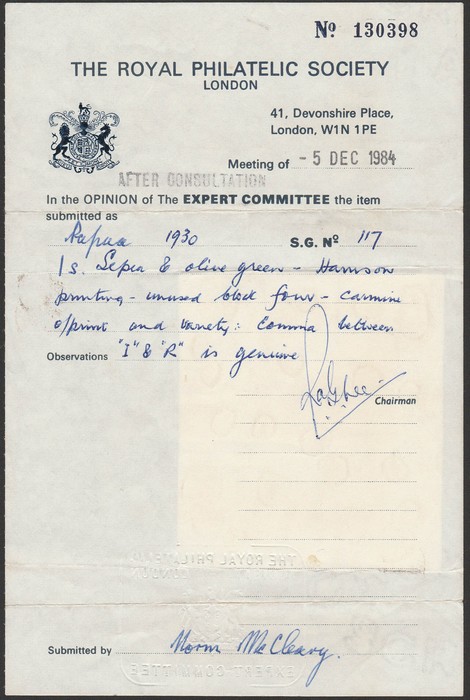 Nº 130398
THE ROYAL PHILATELIC SOCIETY
LONDON
41, Devonshire Place,
London, W1N 1PE
Meeting of - 5 DEC 1984
AFTER CONSULTATION
In the OPINION of The EXPERT COMMITTEE the item
submitted as
Papua 1930 S.G. Nº 117
1s. Sepia & olive green - Harrison
printing - unused block four - carmine
o/print and variety: Comma between
Observations "I" & "R" is genuine
Chairman
THE ROYAL PHILATELIC
LONDON
Submitted by Norm McCleavy.
EXPERT COMMITTEE